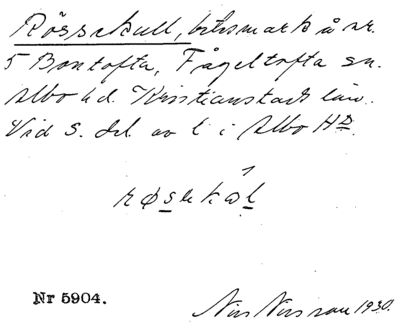 Rössekull, betesmark å nr.
5 Bontofta, Fågeltofta sn.
Albo hd. Kristianstads län.
Vid S. del. av l i Albo HD
Nr 5904.
Nils Nilsson 1930.